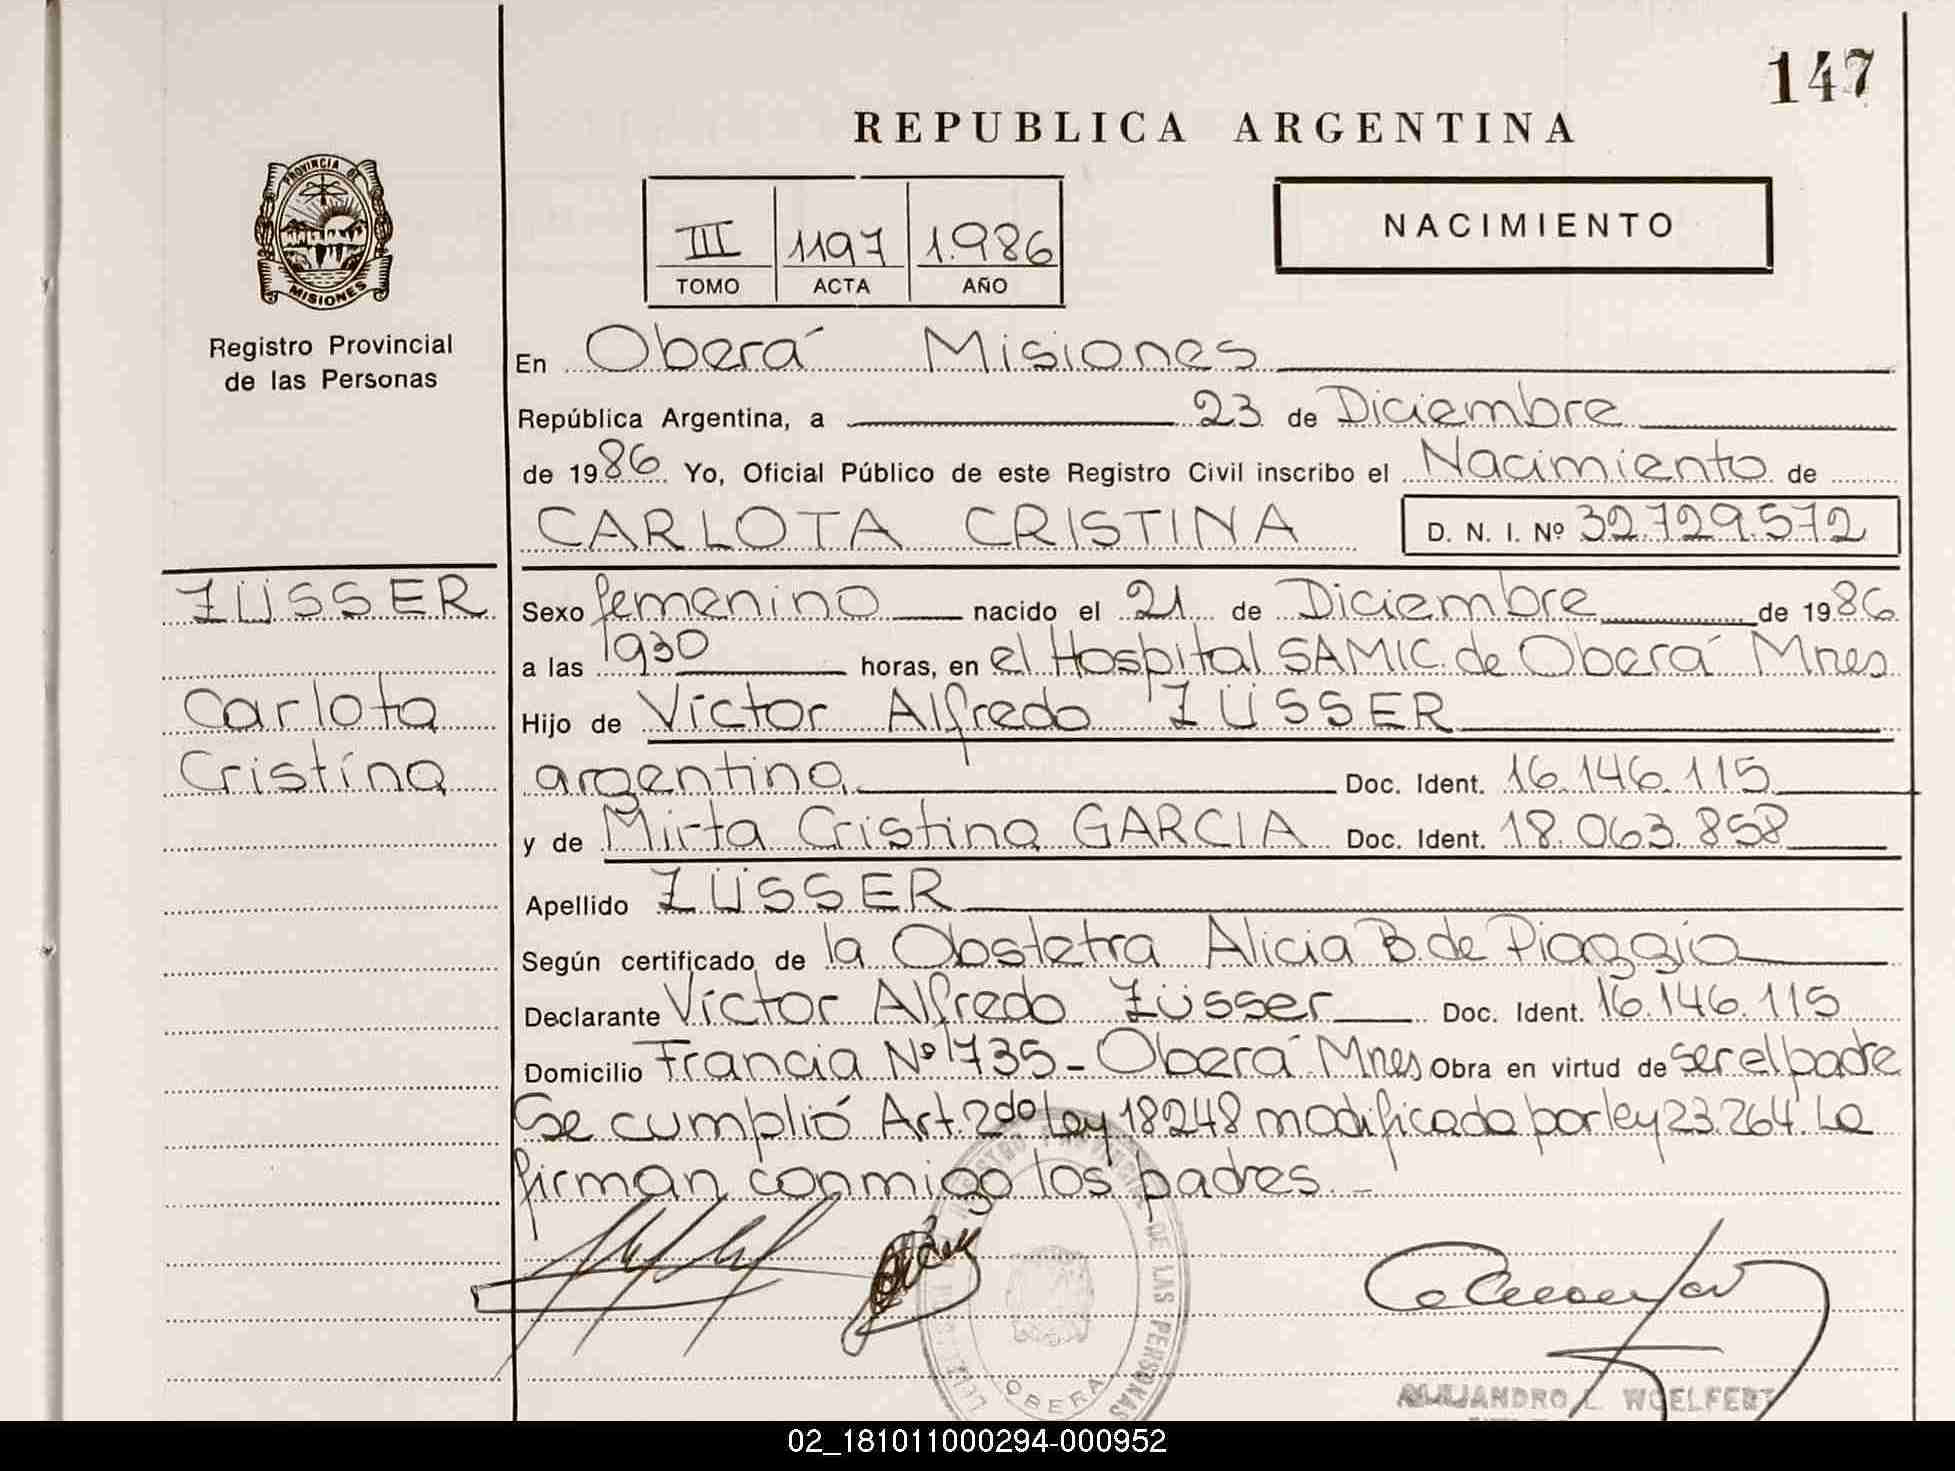 147
REPUBLICA ARGENTINA
PROVINCIA DE
MISIONES
Registro Provincial
de las Personas
III 1197 1.986
TOMO ACTA AÑO
NACIMIENTO
En Oberá Misiones
República Argentina, a 23 de Diciembre
de 1986 Yo, Oficial Público de este Registro Civil inscribo el Nacimiento de
CARLOTA CRISTINA D. N. I. Nº 32.729.572
ZÜSSER
Carlota
Cristina
Sexo femenino nacido el 21 de Diciembre de 1986
a las 1930 horas, en el Hospital SAMIC. de Oberá Mnes
Hijo de Víctor Alfredo ZÜSSER
argentino Doc. Ident. 16.146.115
y de Mirta Cristina GARCIA Doc. Ident. 18.063.858
Apellido ZÜSSER
Según certificado de la Obstetra Alicia B. de Piaggio
Declarante Víctor Alfredo Züsser Doc. Ident. 16.146.115
Domicilio Francia Nº 735 - Oberá Mnes Obra en virtud de ser el padre
Se cumplió Art. 2do Ley 18248 modificada por ley 23.264. La
firman conmigo los padres. -
DE LAS PERSONAS
OBERA
ALEJANDRO L. WOELFERT
02_181011000294-000952